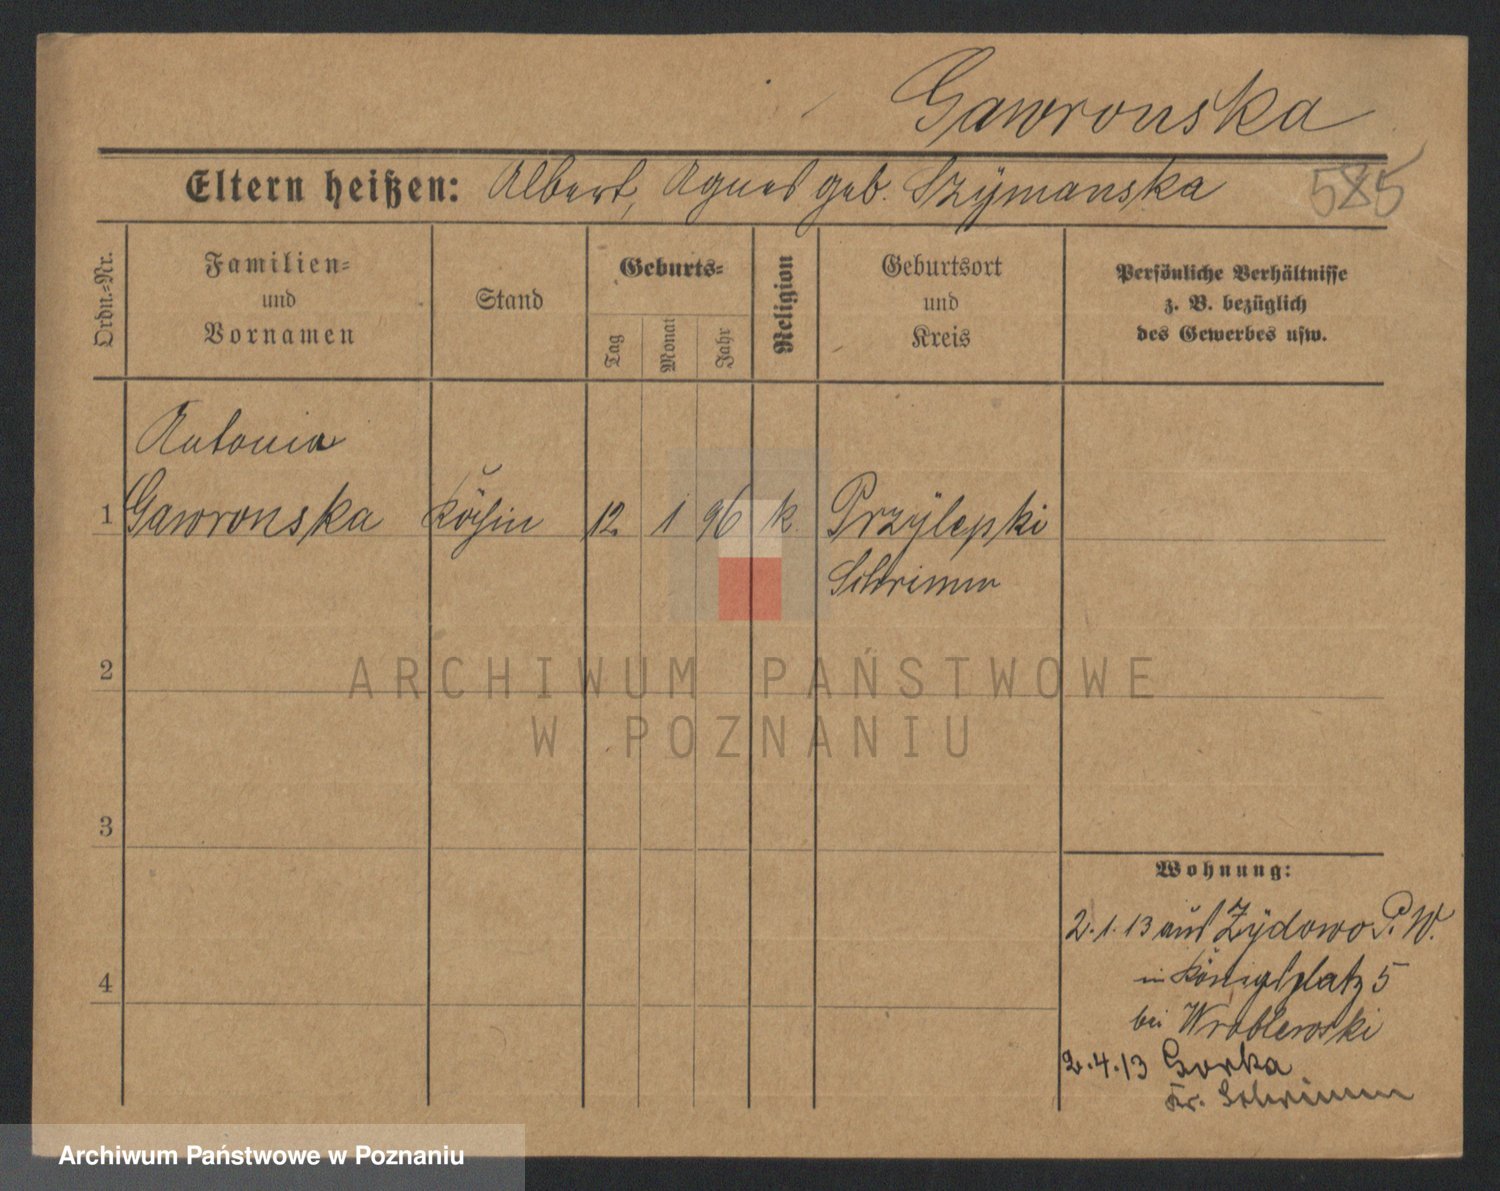 Gawronska
Eltern heißen: Albert, Agnes geb. Szÿmanska
585
Ordn.-Nr.
Familien-
und
Vornamen
Stand
Geburts-
Tag
Monat
Jahr
Religion
Geburtsort
und
Kreis
Persönliche Verhältnisse
z. B. bezüglich
des Gewerbes usw.
Antonia
1 Gawronska Köchin 12. 1 96 k. Przÿlepki
Schrimm
2
ARCHIWUM PAŃSTWOWE
W POZNANIU
3
Wohnung:
2.1.13 aus Zÿdowo P. W.
in Königsplatz 5
4
bei Wroblewski
2.4.13 Gorka
Kr. Schrimm
Archiwum Państwowe w Poznaniu